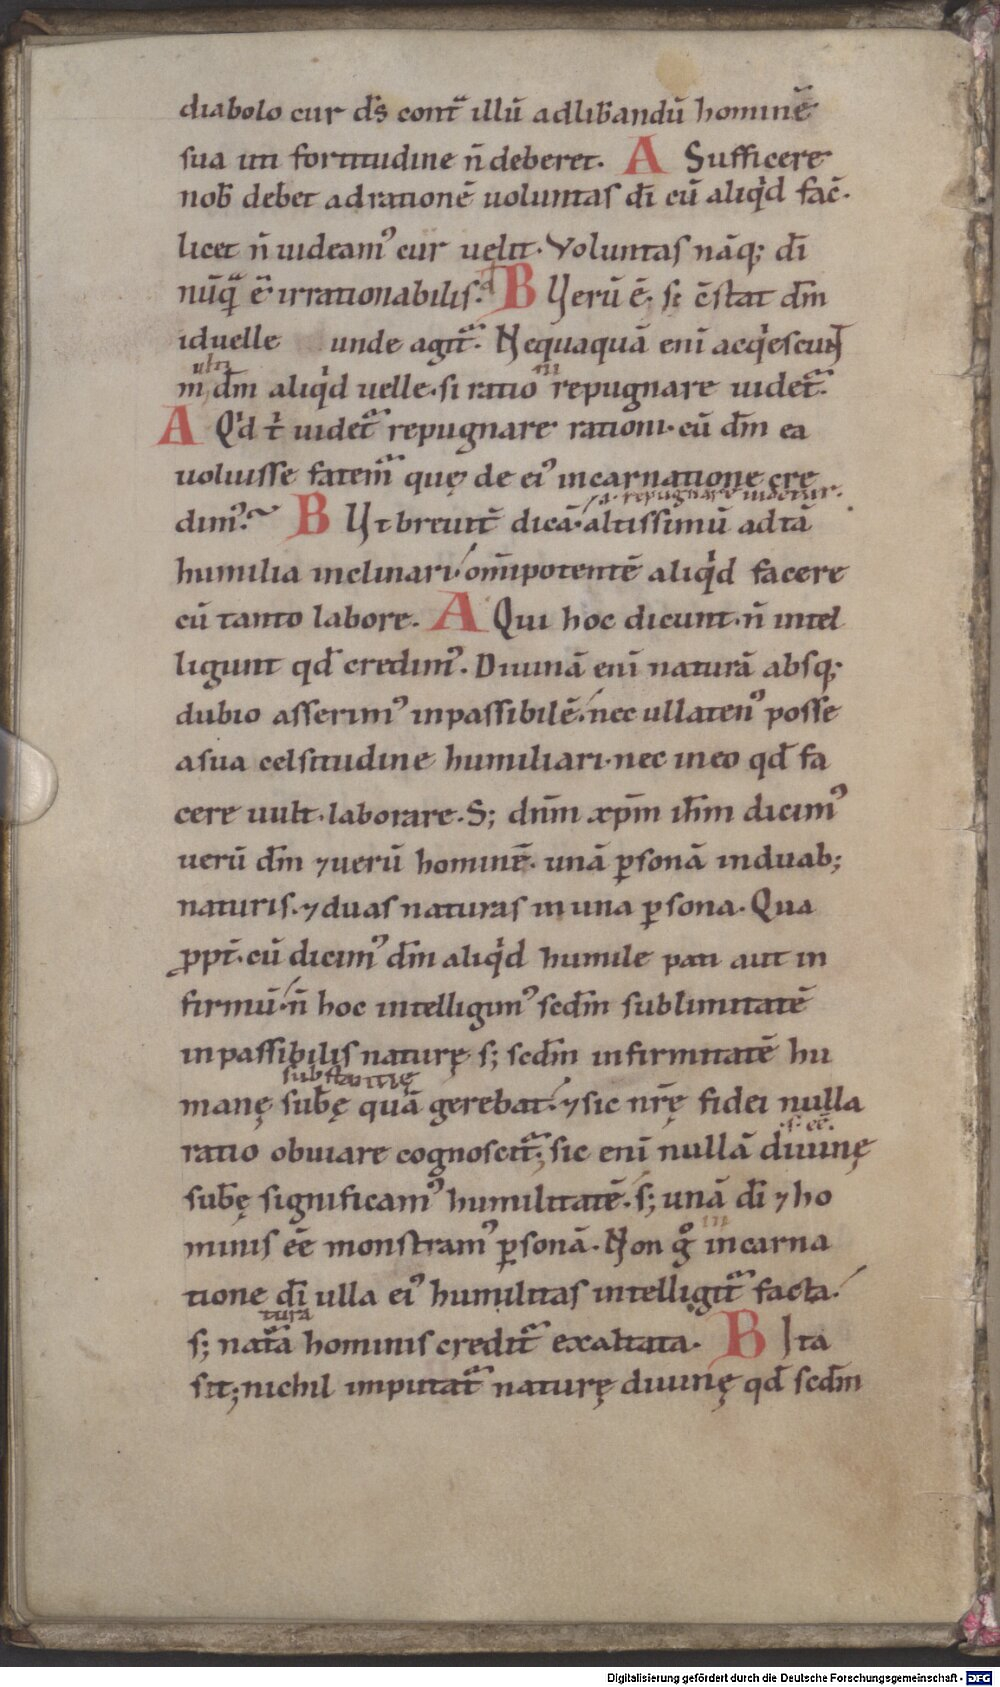 diabolo cur d̄s contᷓ illū adlib̄andū hominē
sua uti fortitudine n̄ deberet. A Sufficere
nob̄ debet adrationē uoluntas dī cū aliqͥd fac̄.
licet n̄ uideamꝰ cur uelit. Voluntas nāq; dī
nūqᷓ ē irrationabilis. B Verū ē. si c̄stat dm̄
id uelle unde agitᷓ. Nequaquā enī acqͥescunt
m̄lti dm̄ aliqͥd uelle. si ratio repugnare uidetᷓ.
A Qͥd t̄ uidetᷓ repugnare rationi. cū dm̄ ea
uoluisse fatemᷓ quę de eiꝰ incarnatione cre
.s. repugnare uidetur.
dimꝰ. B Vt breuit̄ dicā. altissimū ad tā
humilia inclinari. om̄ipotentē aliqͥd facere
cū tanto labore. A Qui hoc dicunt. n̄ intel
ligunt qd̄ credimꝰ. Diuinā enī naturā absq;
dubio asserimꝰ inpassibilē. nec ullatenꝰ posse
a sua celsitudine humiliari. nec in eo qd̄ fa
cere uult. laborare. S; dnm̄ xpm̄ ihm̄ dicimꝰ
uerū dm̄ ⁊ uerū hominē. unā ꝑsonā in duab;
naturis. ⁊ duas naturas in una ꝑsona. Qua
ꝓpt̄. cū dicimꝰ dm̄ aliqͥd humile pati aut in
firmū. n̄ hoc intelligimꝰ scdm̄ sublimitatē
inpassibilis naturę s; scdm̄ infirmitatē hu
substantię
manę sub̄ę quā gerebat. ⁊ sic nr̄ę fidei nulla
ratio obuiare cognoscitᷓ. sic enī nullā diuinę
.s. eē.
sub̄ę significamꝰ humilitatē. s; unā dī ⁊ ho
minis eē monstramꝰ ꝑsonā. Non gͦ in incarna
tione dī ulla eiꝰ humilitas intelligitᷓ facta.
tura
s; natᷓa hominis creditᷓ exaltata. B Ita
sit; nichil imputatᷓ naturę diuinę qd̄ scdm̄
Digitalisierung gefördert durch die Deutsche Forschungsgemeinschaft - DFG